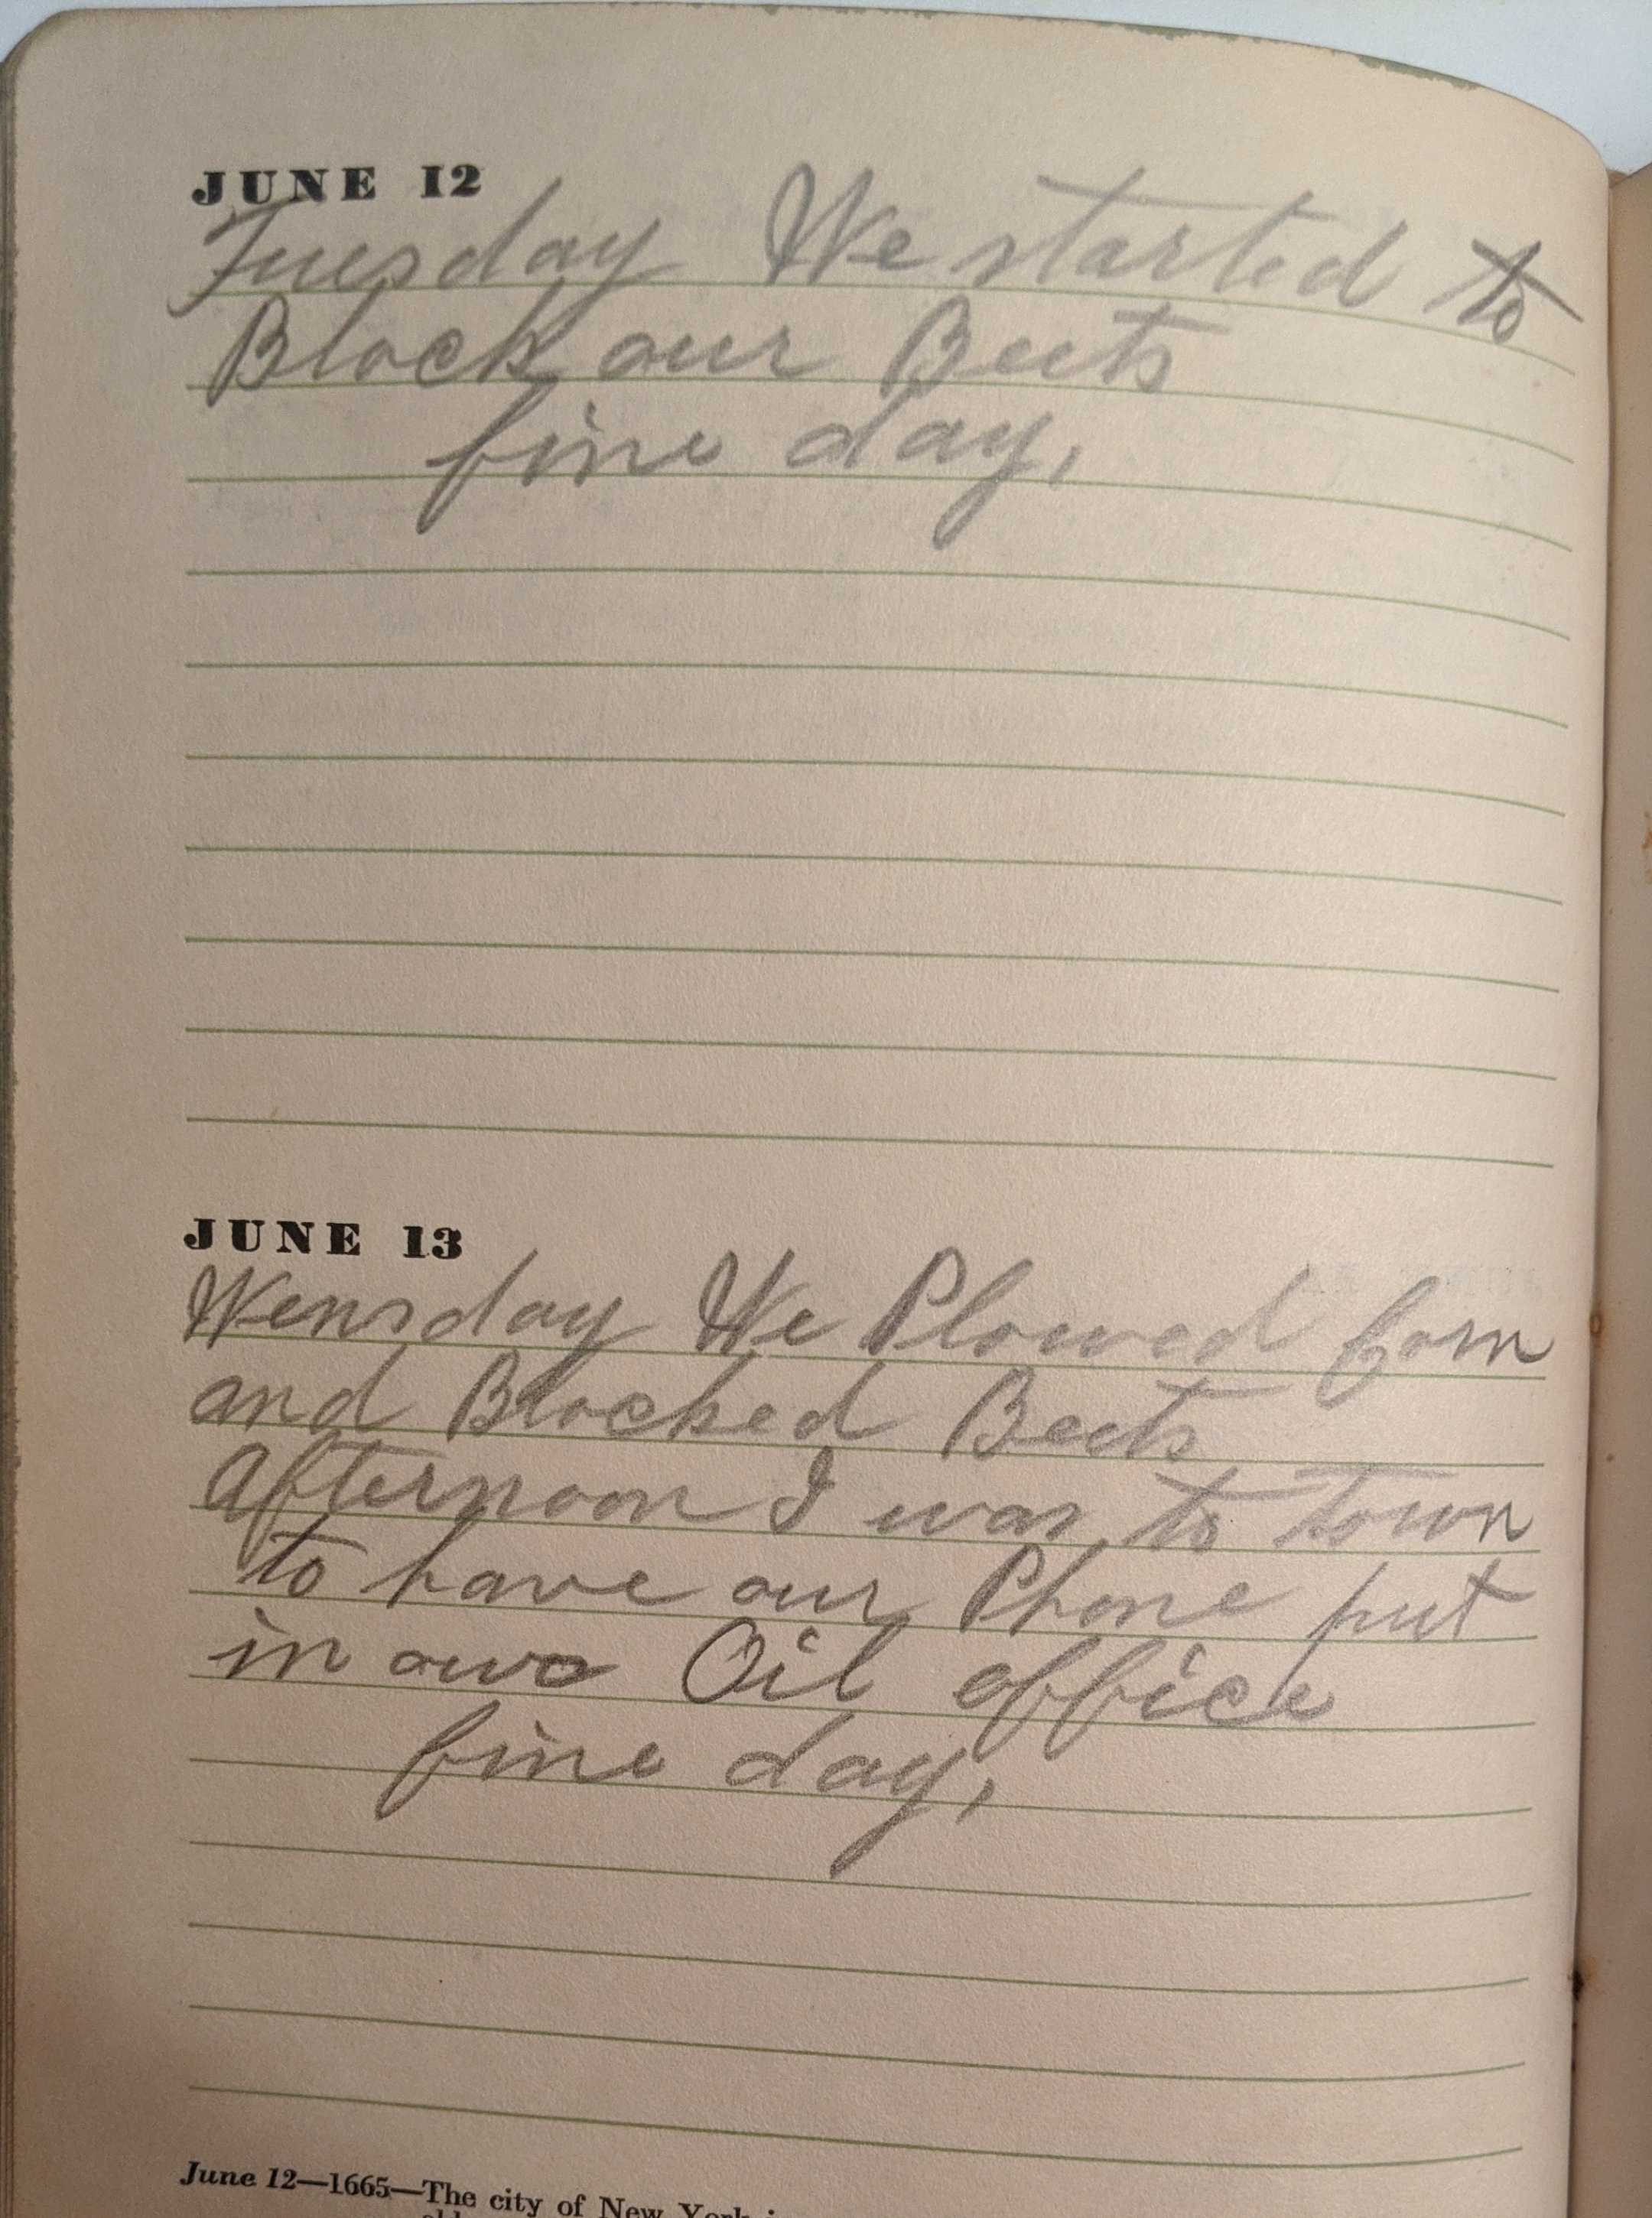 JUNE 12
Tuesday We started to
Block our Beets
fine day,
JUNE 13
Wensday We Plowed Corn
and Blocked Beets
Afternoon I was to town
to have our Phone put
in our Oil office
fine day,
June 12—1665—The city of New York